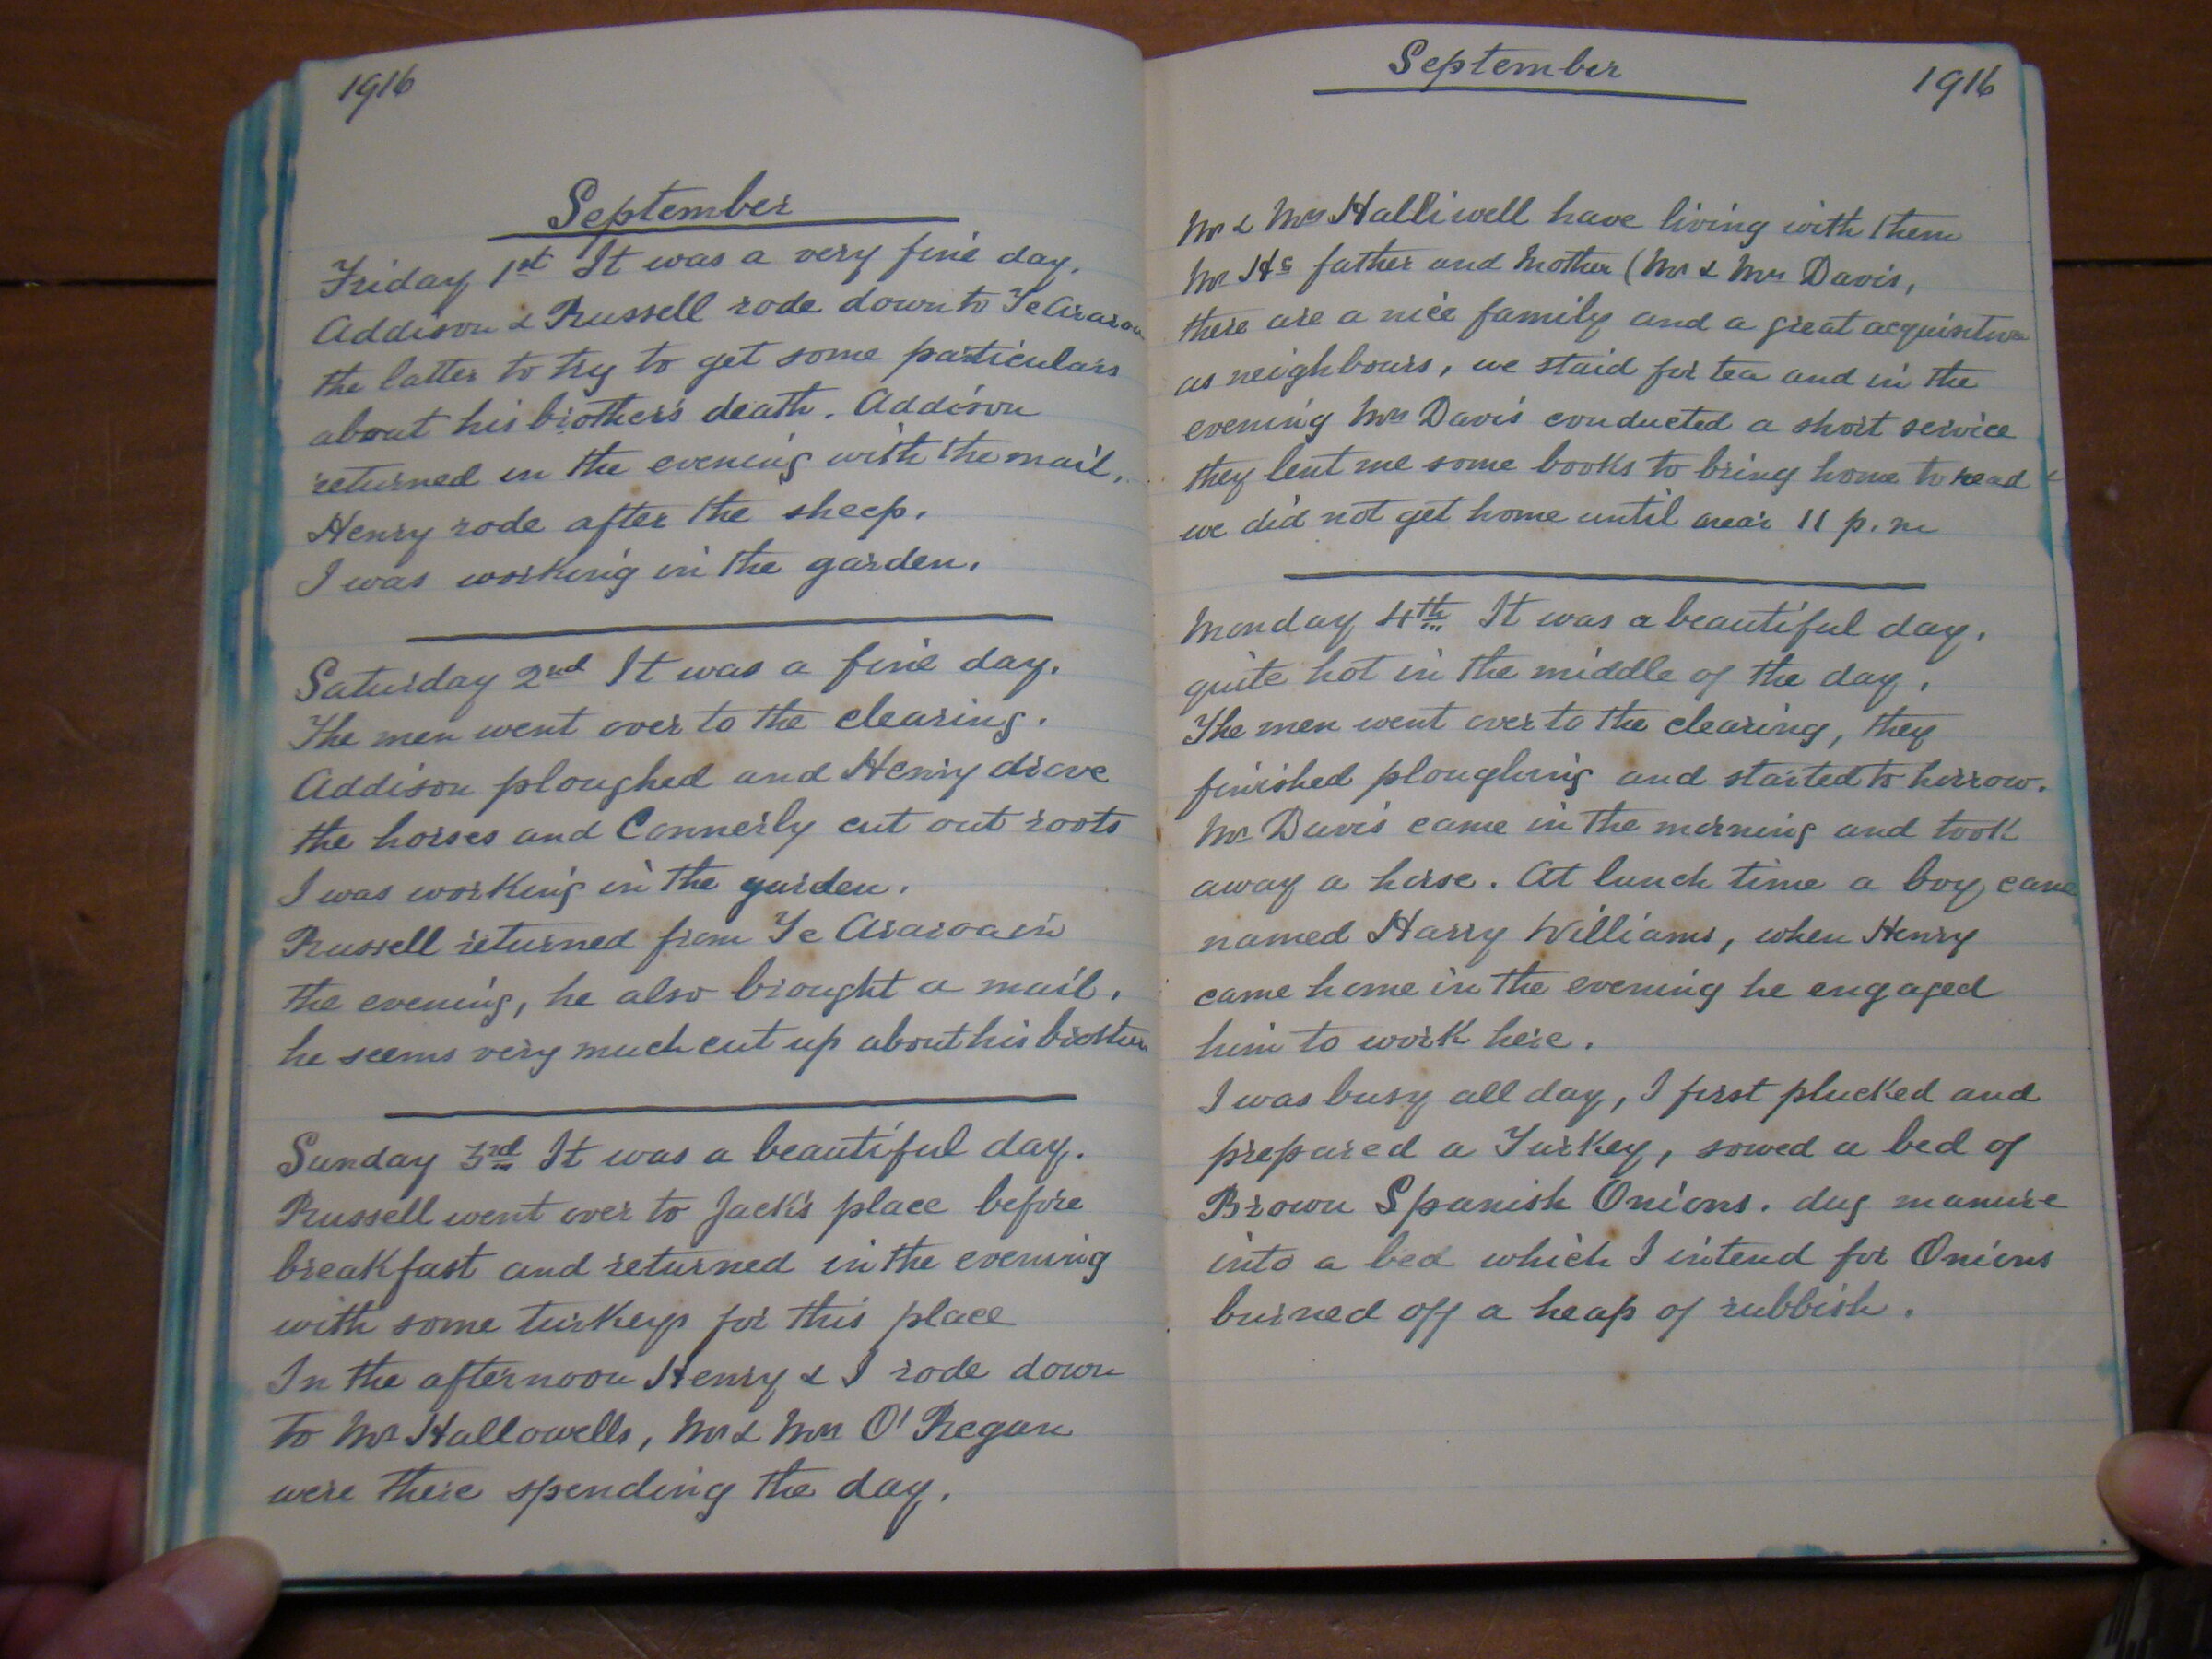 1916
September
Friday 1st It was a very fine day.
Addison & Russell rode down to Te Araroa
the latter to try to get some particulars
about his brother's death. Addison
returned in the evening with the mail,
Henry rode after the sheep.
I was working in the garden.
Saturday 2nd It was a fine day.
The men went over to the clearing.
Addison ploughed and Henry drove
the horses and Connerly cut out roots
I was working in the garden.
Russell returned from Te Araroa in
the evening, he also brought a mail,
he seems very much cut up about his brother
Sunday 3rd It was a beautiful day.
Russell went over to Jack's place before
breakfast and returned in the evening
with some turkeys for this place
In the afternoon Henry & I rode down
to Mr Hallowells, Mr & Mrs O'Regan
were there spending the day.
September
1916
Mr & Mrs Halliwell have living with them
Mr Hs father and Mother (Mr & Mrs Davis,
there are a nice family and a great acquisition
as neighbours, we staid for tea and in the
evening Mrs Davis conducted a short service
they lent me some books to bring home to read &
we did not get home until near 11 p.m
Monday 4th It was a beautiful day.
quite hot in the middle of the day,
The men went over to the clearing, they
finished ploughing and started to hirrow.
Mr Davis came in the morning and took
away a horse. At lunch time a boy came
named Harry Williams, when Henry
came home in the evening he engaged
him to work here.
I was busy all day, I first plucked and
prepared a Turkey, sowed a bed of
Brown Spanish Onions. dug manure
into a bed which I intend for Onions
burned off a heap of rubbish.